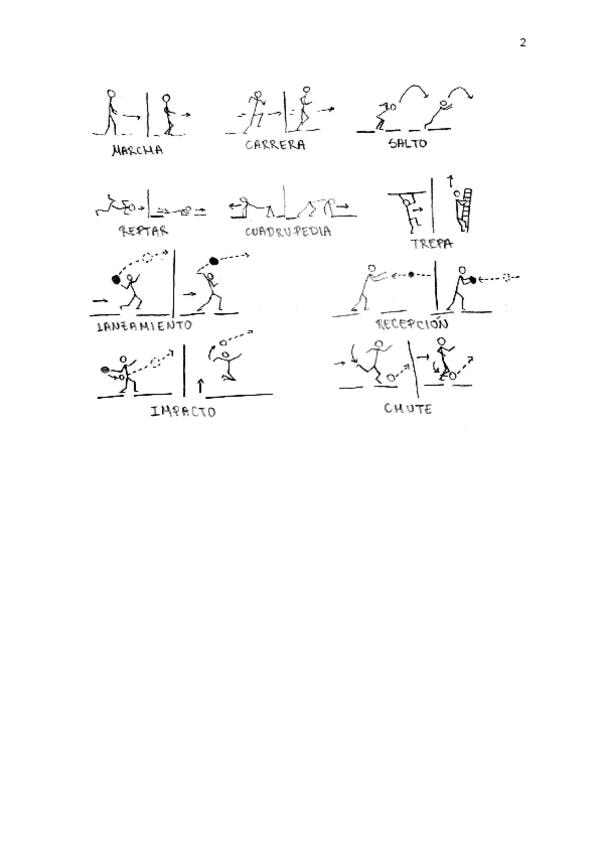 2
MARCHA
CARRERA
SALTO
REPTAR
CUADRUPEDIA
TREPA
LANZAMIENTO
RECEPCIÓN
IMPACTO
CHUTE